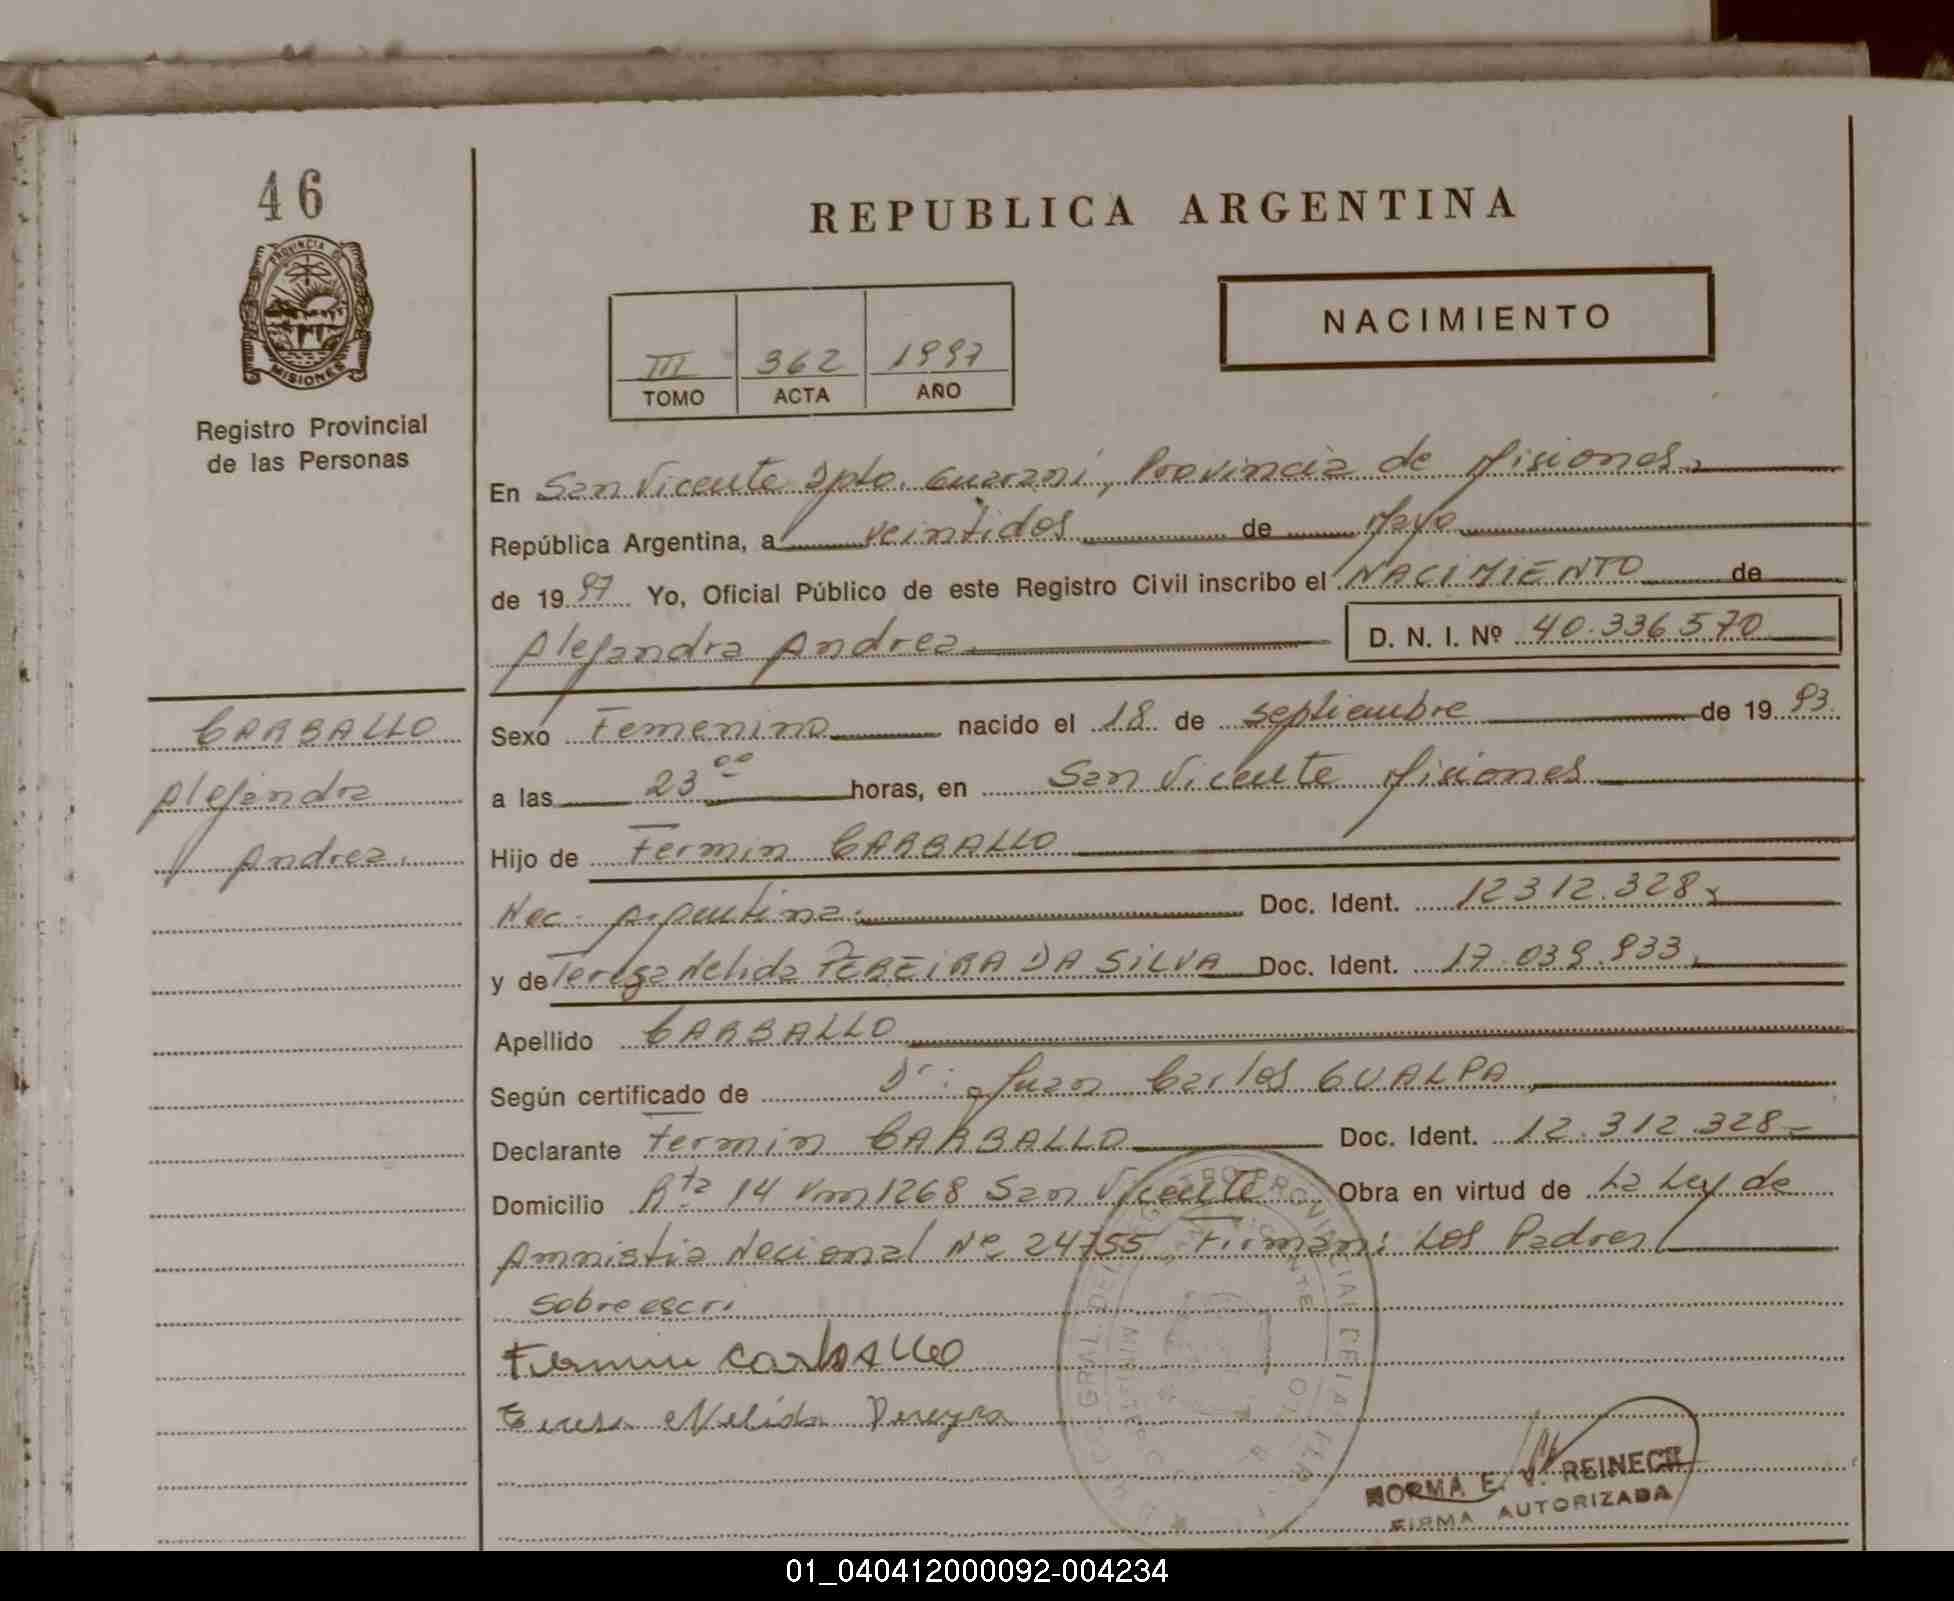 46
REPUBLICA ARGENTINA
PROVINCIA DE
MISIONES
NACIMIENTO
III 362 1997
TOMO ACTA AÑO
Registro Provincial
de las Personas
En San Vicente Dpto. Guaraní, Provincia de Misiones.
República Argentina, a veintidos de Mayo
de 1997 Yo, Oficial Público de este Registro Civil inscribo el NACIMIENTO de
Alejandra Andrea D. N. I. Nº 40.336.570
CARBALLO
Alejandra
Andrea.
Sexo Femenino nacido el 18 de septiembre de 1993.
a las 23 oo horas, en San Vicente Misiones
Hijo de Fermin CARBALLO
Nac. Argentina. Doc. Ident. 12312.328
y de Teresa Nelida PEREIRA DA SILVA Doc. Ident. 17.039.933.
Apellido CARBALLO
Según certificado de Dr: Juan Carlos GUALPA
Declarante Fermin CARBALLO Doc. Ident. 12.312.328-
Domicilio Rta 14 Km 1268 San Vicente Obra en virtud de La Ley de
Amnistia Nacional Nº 24755 Firman: Los Padres
Sobreescri
Fermin CarbALLO
Teresa Nelida Pereyra
NORMA E. V. REINECK
FIRMA AUTORIZADA
01_040412000092-004234